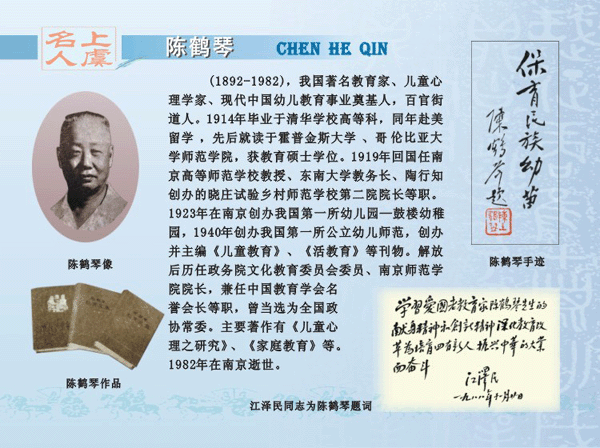 上虞
名人
陈鹤琴 CHEN HE QIN
(1892-1982)，我国著名教育家、儿童心
理学家、现代中国幼儿教育事业奠基人，百官街
道人。1914年毕业于清华学校高等科，同年赴美
留学，先后就读于霍普金斯大学、哥伦比亚大
学师范学院，获教育硕士学位。1919年回国任南
京高等师范学校教授、东南大学教务长、陶行知
创办的晓庄试验乡村师范学校第二院院长等职。
1923年在南京创办我国第一所幼儿园—鼓楼幼稚
园，1940年创办我国第一所公立幼儿师范，创办
并主编《儿童教育》、《活教育》等刊物。解放
后历任政务院文化教育委员会委员、南京师范学
院院长，兼任中国教育学会名
誉会长等职，曾当选为全国政
协常委。主要著作有《儿童心
理之研究》、《家庭教育》等。
1982年在南京逝世。
陈鹤琴像
陈鹤琴作品
保育民族幼苗
陳鶴琴题
陈鹤琴手迹
学习爱国老教育家陈鹤琴先生的
献身精神和创新精神 深化教育改
革为培育四有新人 振兴中华的大业
而奋斗
江泽民
江泽民同志为陈鹤琴题词